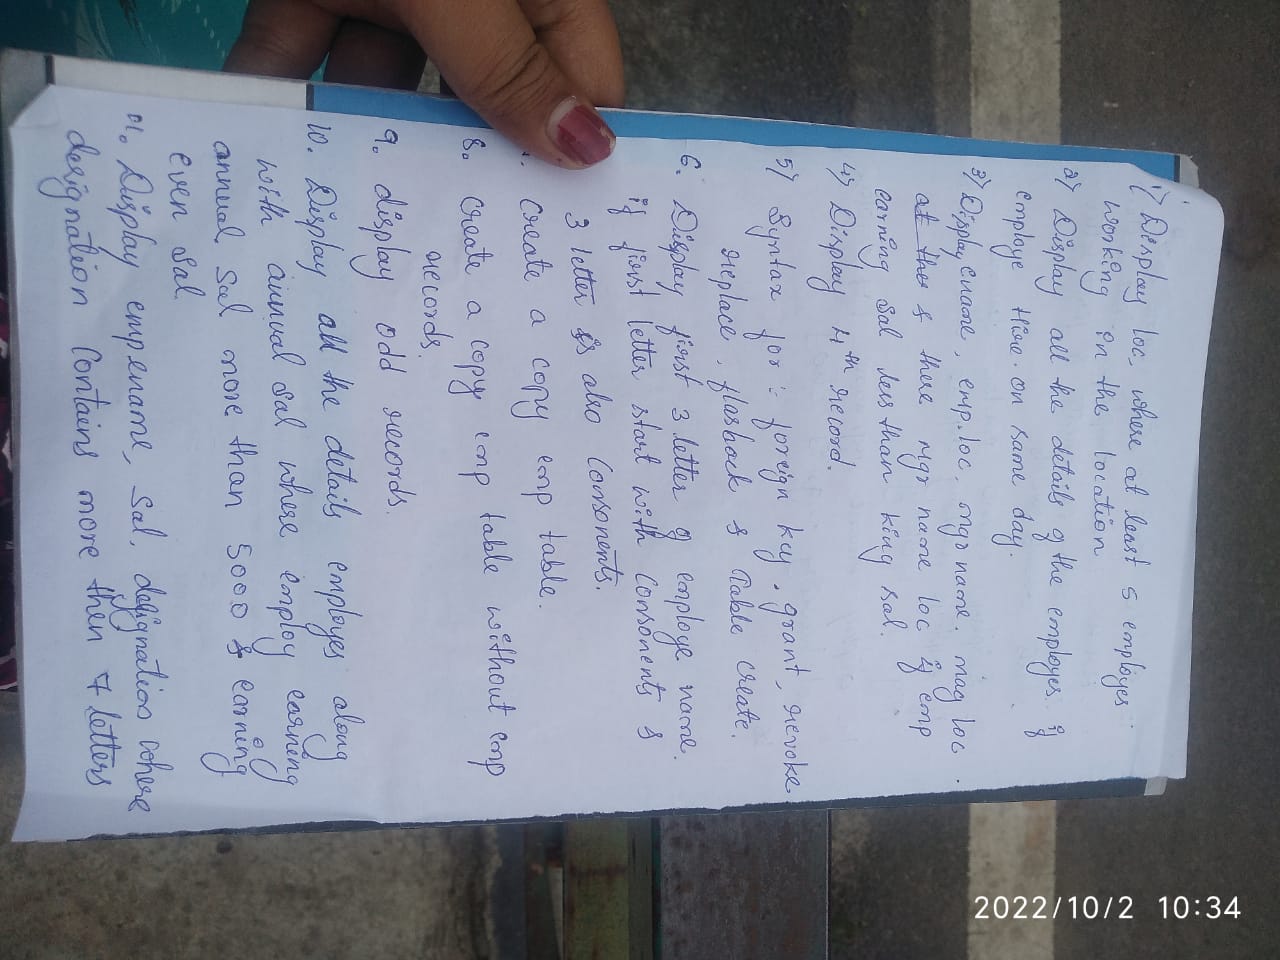 1) Display loc, where at least 5 employes
working on the location
2) Display all the details of the employes if
employe Hire. on same day.
3) Display ename, emp.loc, mgr name. mag loc.
at thes & there mgr name loc if emp
earning sal less than king sal.
4) Display 4th record.
5) Syntax for :- foreign key, grant, revoke
replace, flashback & Table create.
6. Display first 3 letter of employe name.
if first letter start with consonents &
3 letter is also consonents.
create a copy emp table.
8. create a copy emp table without emp
records.
9. display odd records.
10. Display all the details employes along
with annual sal where employ earning
annual sal more than 5000 & earning
even sal
11. Display emp ename, sal, designation where
designation contains more then 7 letters
2022/10/2 10:34